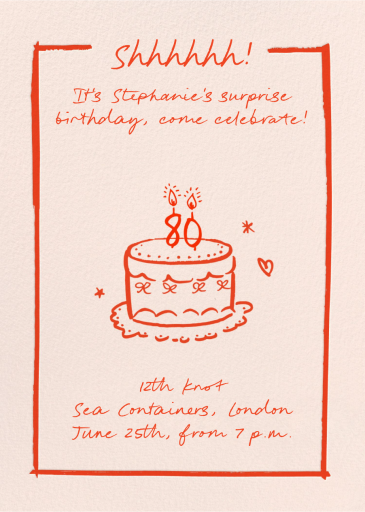 Shhhhhh!
It's Stephanie's surprise
birthday, come celebrate!
80
12th Knot
Sea Containers, London
June 25th, from 7 p.m.